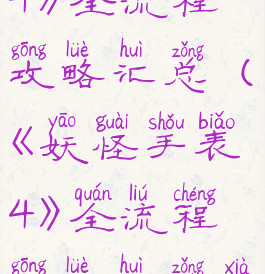 4》全流程
gōng lüè huì zǒng
攻略汇总（
yāo guài shǒu biǎo
《妖怪手表
quán liú chéng
4》全流程
gōng lüè huì zǒng xià